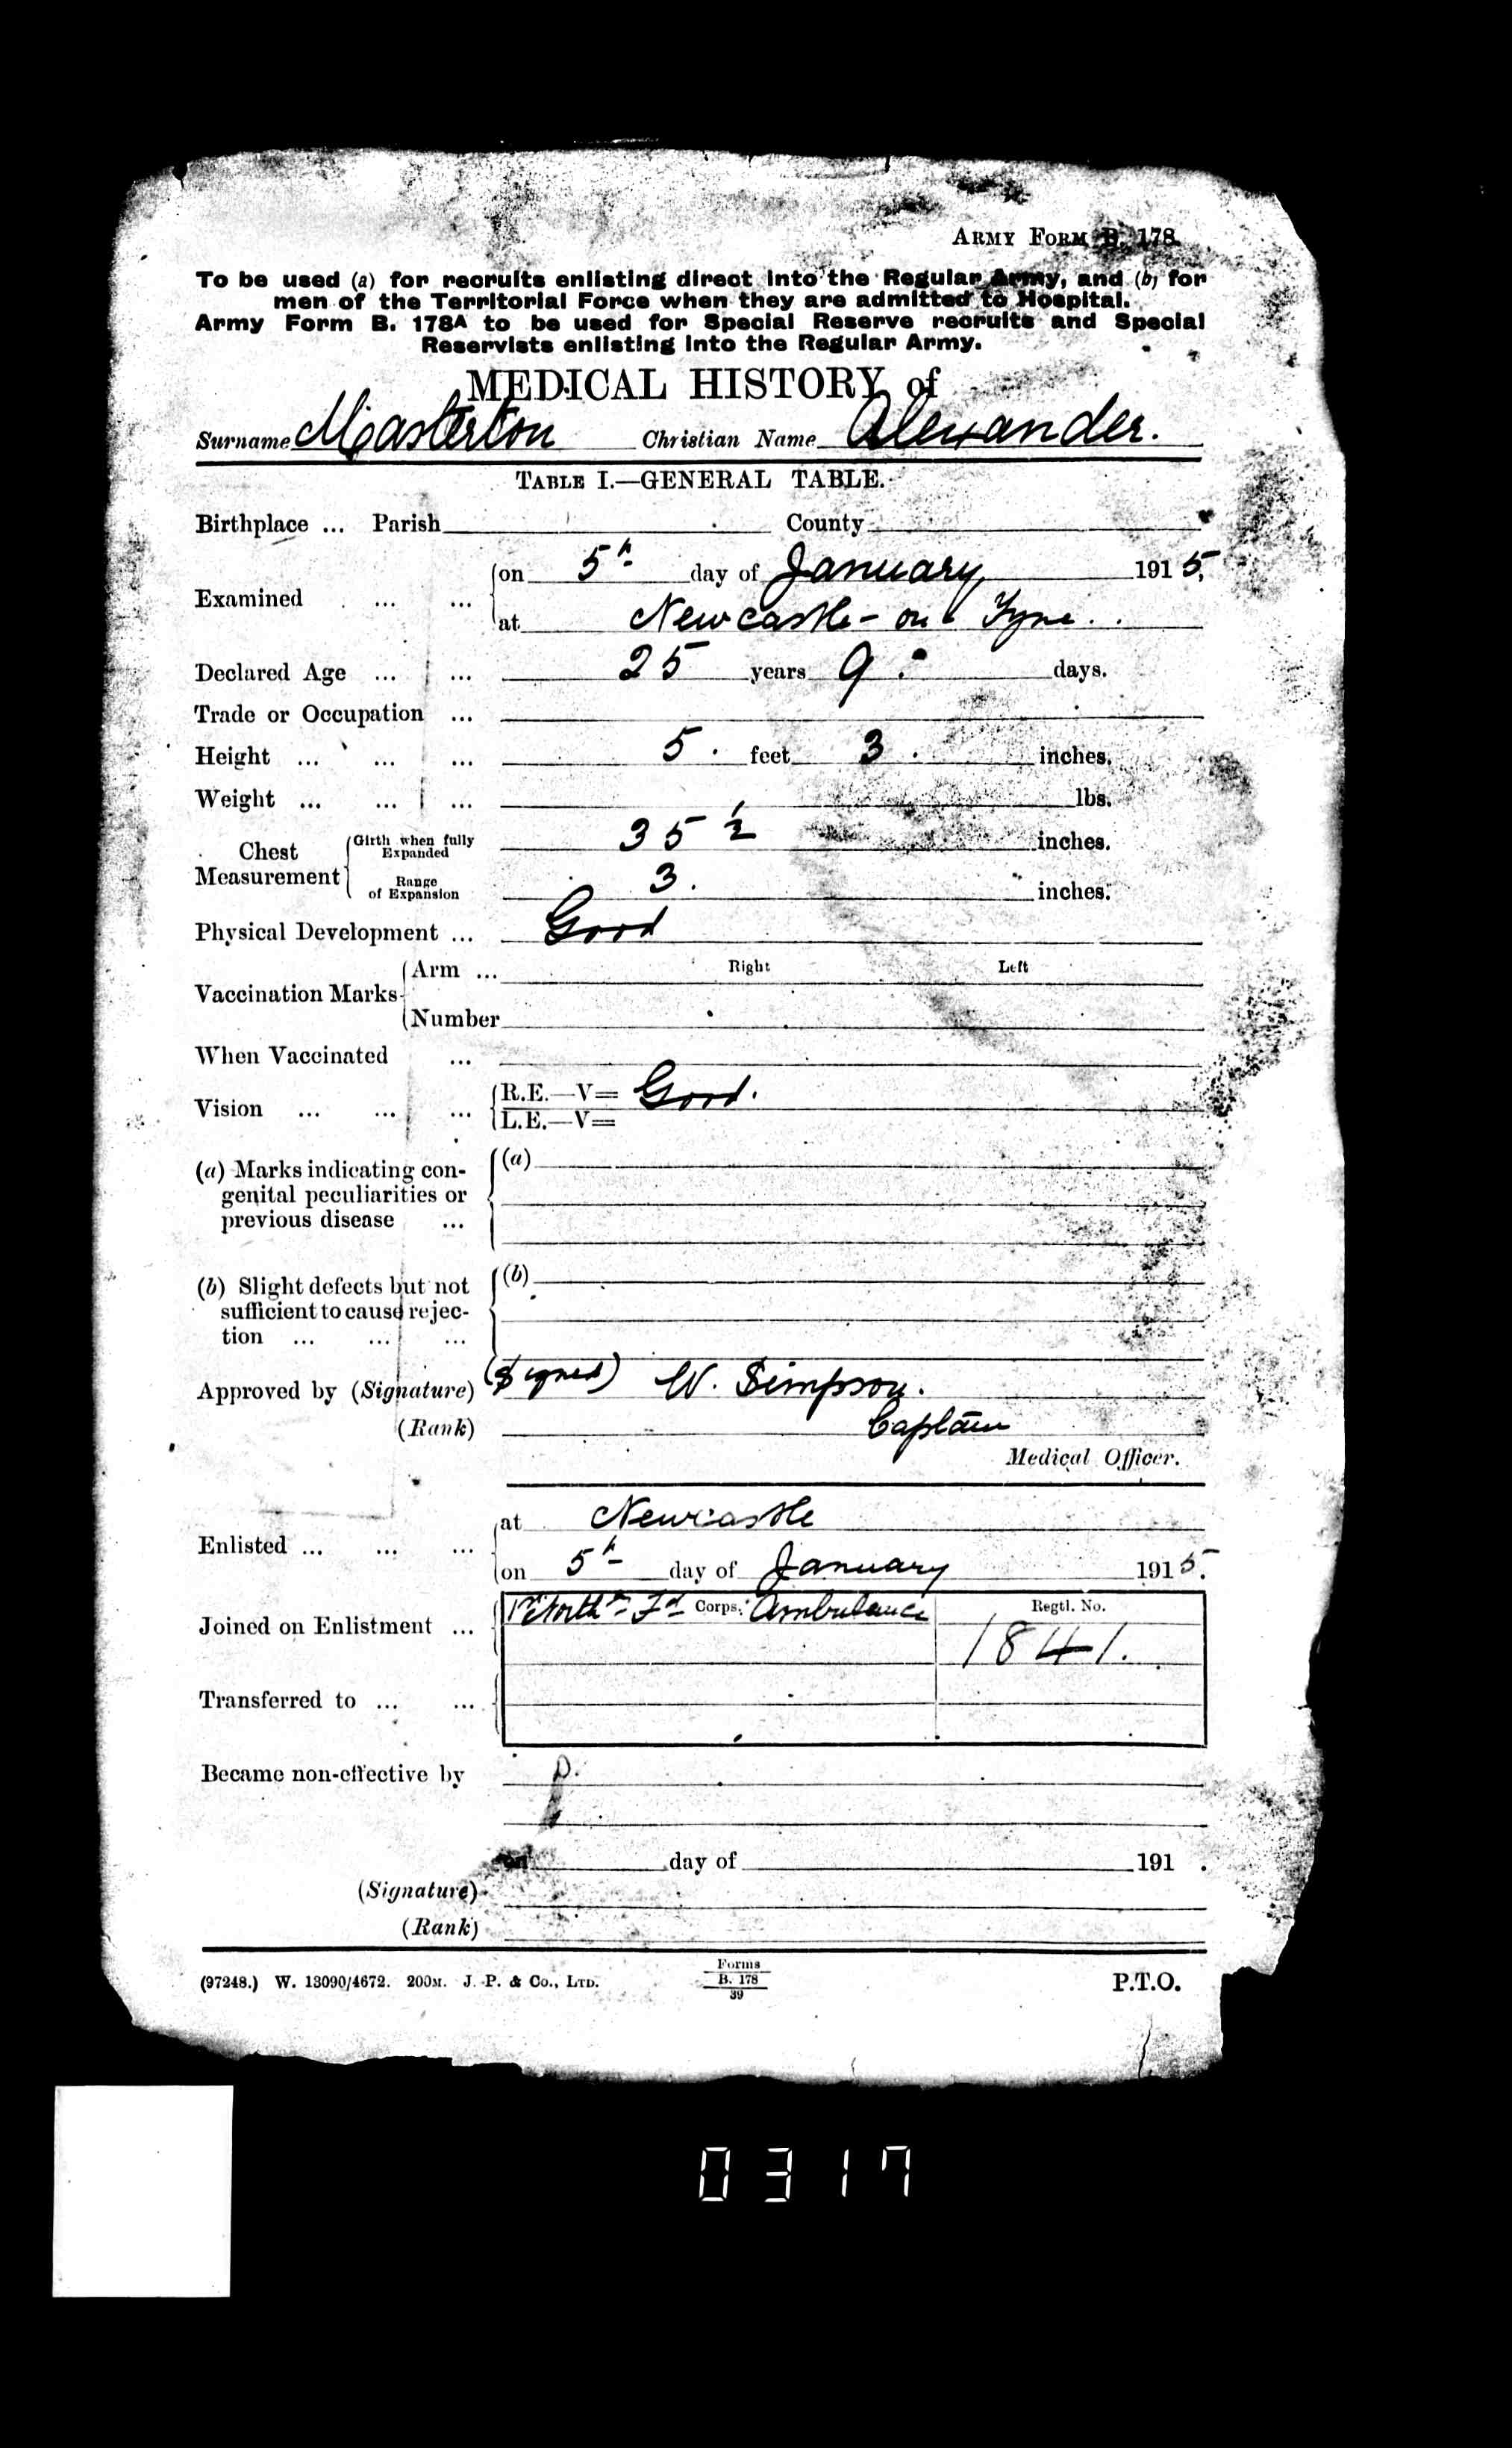 ARMY FORM B. 178.
To be used (a) for recruits enlisting direct into the Regular Army, and (b) for
men of the Territorial Force when they are admitted to Hospital.
Army Form B. 178A to be used for Special Reserve recruits and Special
Reservists enlisting into the Regular Army.
MEDICAL HISTORY of
Surname Masterton Christian Name Alexander.
TABLE I.—GENERAL TABLE.
Birthplace ... Parish County
Examined ... ... on 5th day of January 1915.
at Newcastle-on Tyne.
Declared Age ... ... 25 years 9 days.
Trade or Occupation ...
Height ... ... ... 5. feet 3. inches.
Weight ... ... ... lbs.
Chest Measurement Girth when fully Expanded 35 1/2 inches.
Range of Expansion 3. inches.
Physical Development ... Good
Vaccination Marks Arm ... Right Left
Number
When Vaccinated ...
Vision ... ... ... R.E.—V= Good.
L.E.—V=
(a) Marks indicating con- (a)
genital peculiarities or
previous disease ...
(b) Slight defects but not (b)
sufficient to cause rejec-
tion ... ... ...
Approved by (Signature) (Signed) W. Simpson.
(Rank) Captain
Medical Officer.
Enlisted ... ... ... at Newcastle
on 5th day of January 1915.
Joined on Enlistment ... Corps. Ambulance Regtl. No.
1841.
Transferred to ... ...
Became non-effective by
on day of 191 .
(Signature)
(Rank)
(97248.) W. 13090/4672. 200M. J. P. & Co., LTD. Forms B. 178 39 P.T.O.
0317